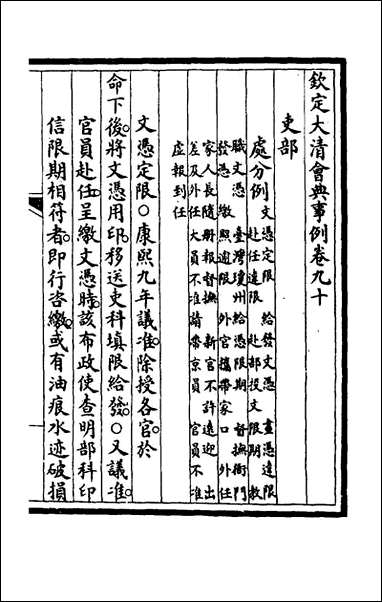 欽定大清會典事例卷九十
吏部
處分例 文憑定限 給發文憑 畫憑違限
赴任違限 赴部投文限期 教
職文憑 臺灣瓊州給憑限期 督撫衙門
發憑繳照逾限 外官攜帶家口 外任
家人長隨册報督撫 新官不許遠迎 出
差及外任大員不准請帶京員 官員不准
虛報到任
文憑定限○康熙九年議准除授各官於
命下後將文憑用印移送吏科填限給發○又議准
官員赴任呈繳文憑時該布政使查明部科印
信限期相符者即行咨繳或有油痕水迹破損